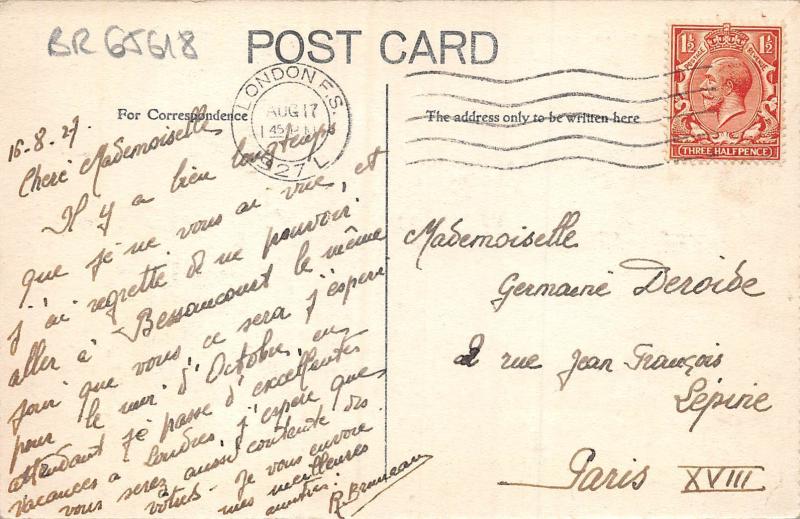 BR 65618
POST CARD
LONDON F.S.
AUG 17
1927
1½ 1½
POSTAGE REVENUE
THREE HALFPENCE
For Correspondence
The address only to be written here
16.8.27.
Cherè Mademoiselle
Il y a bien longtemps
que je ne vous ai vue, et
j'ai regretté de ne pouvoir
aller à Bessancourt le même
jour que vous, ce sera j'espère
pour le mois d'Octobre, en
attendant je passe d'excellentes
vacances à Londres j'espère que
vous serez aussi contente des
vôtres. Je vous envoie
mes meilleures
amitiés.
Mademoiselle
Germaine Deroide
2 rue Jean François
Lépine
Paris XVIII